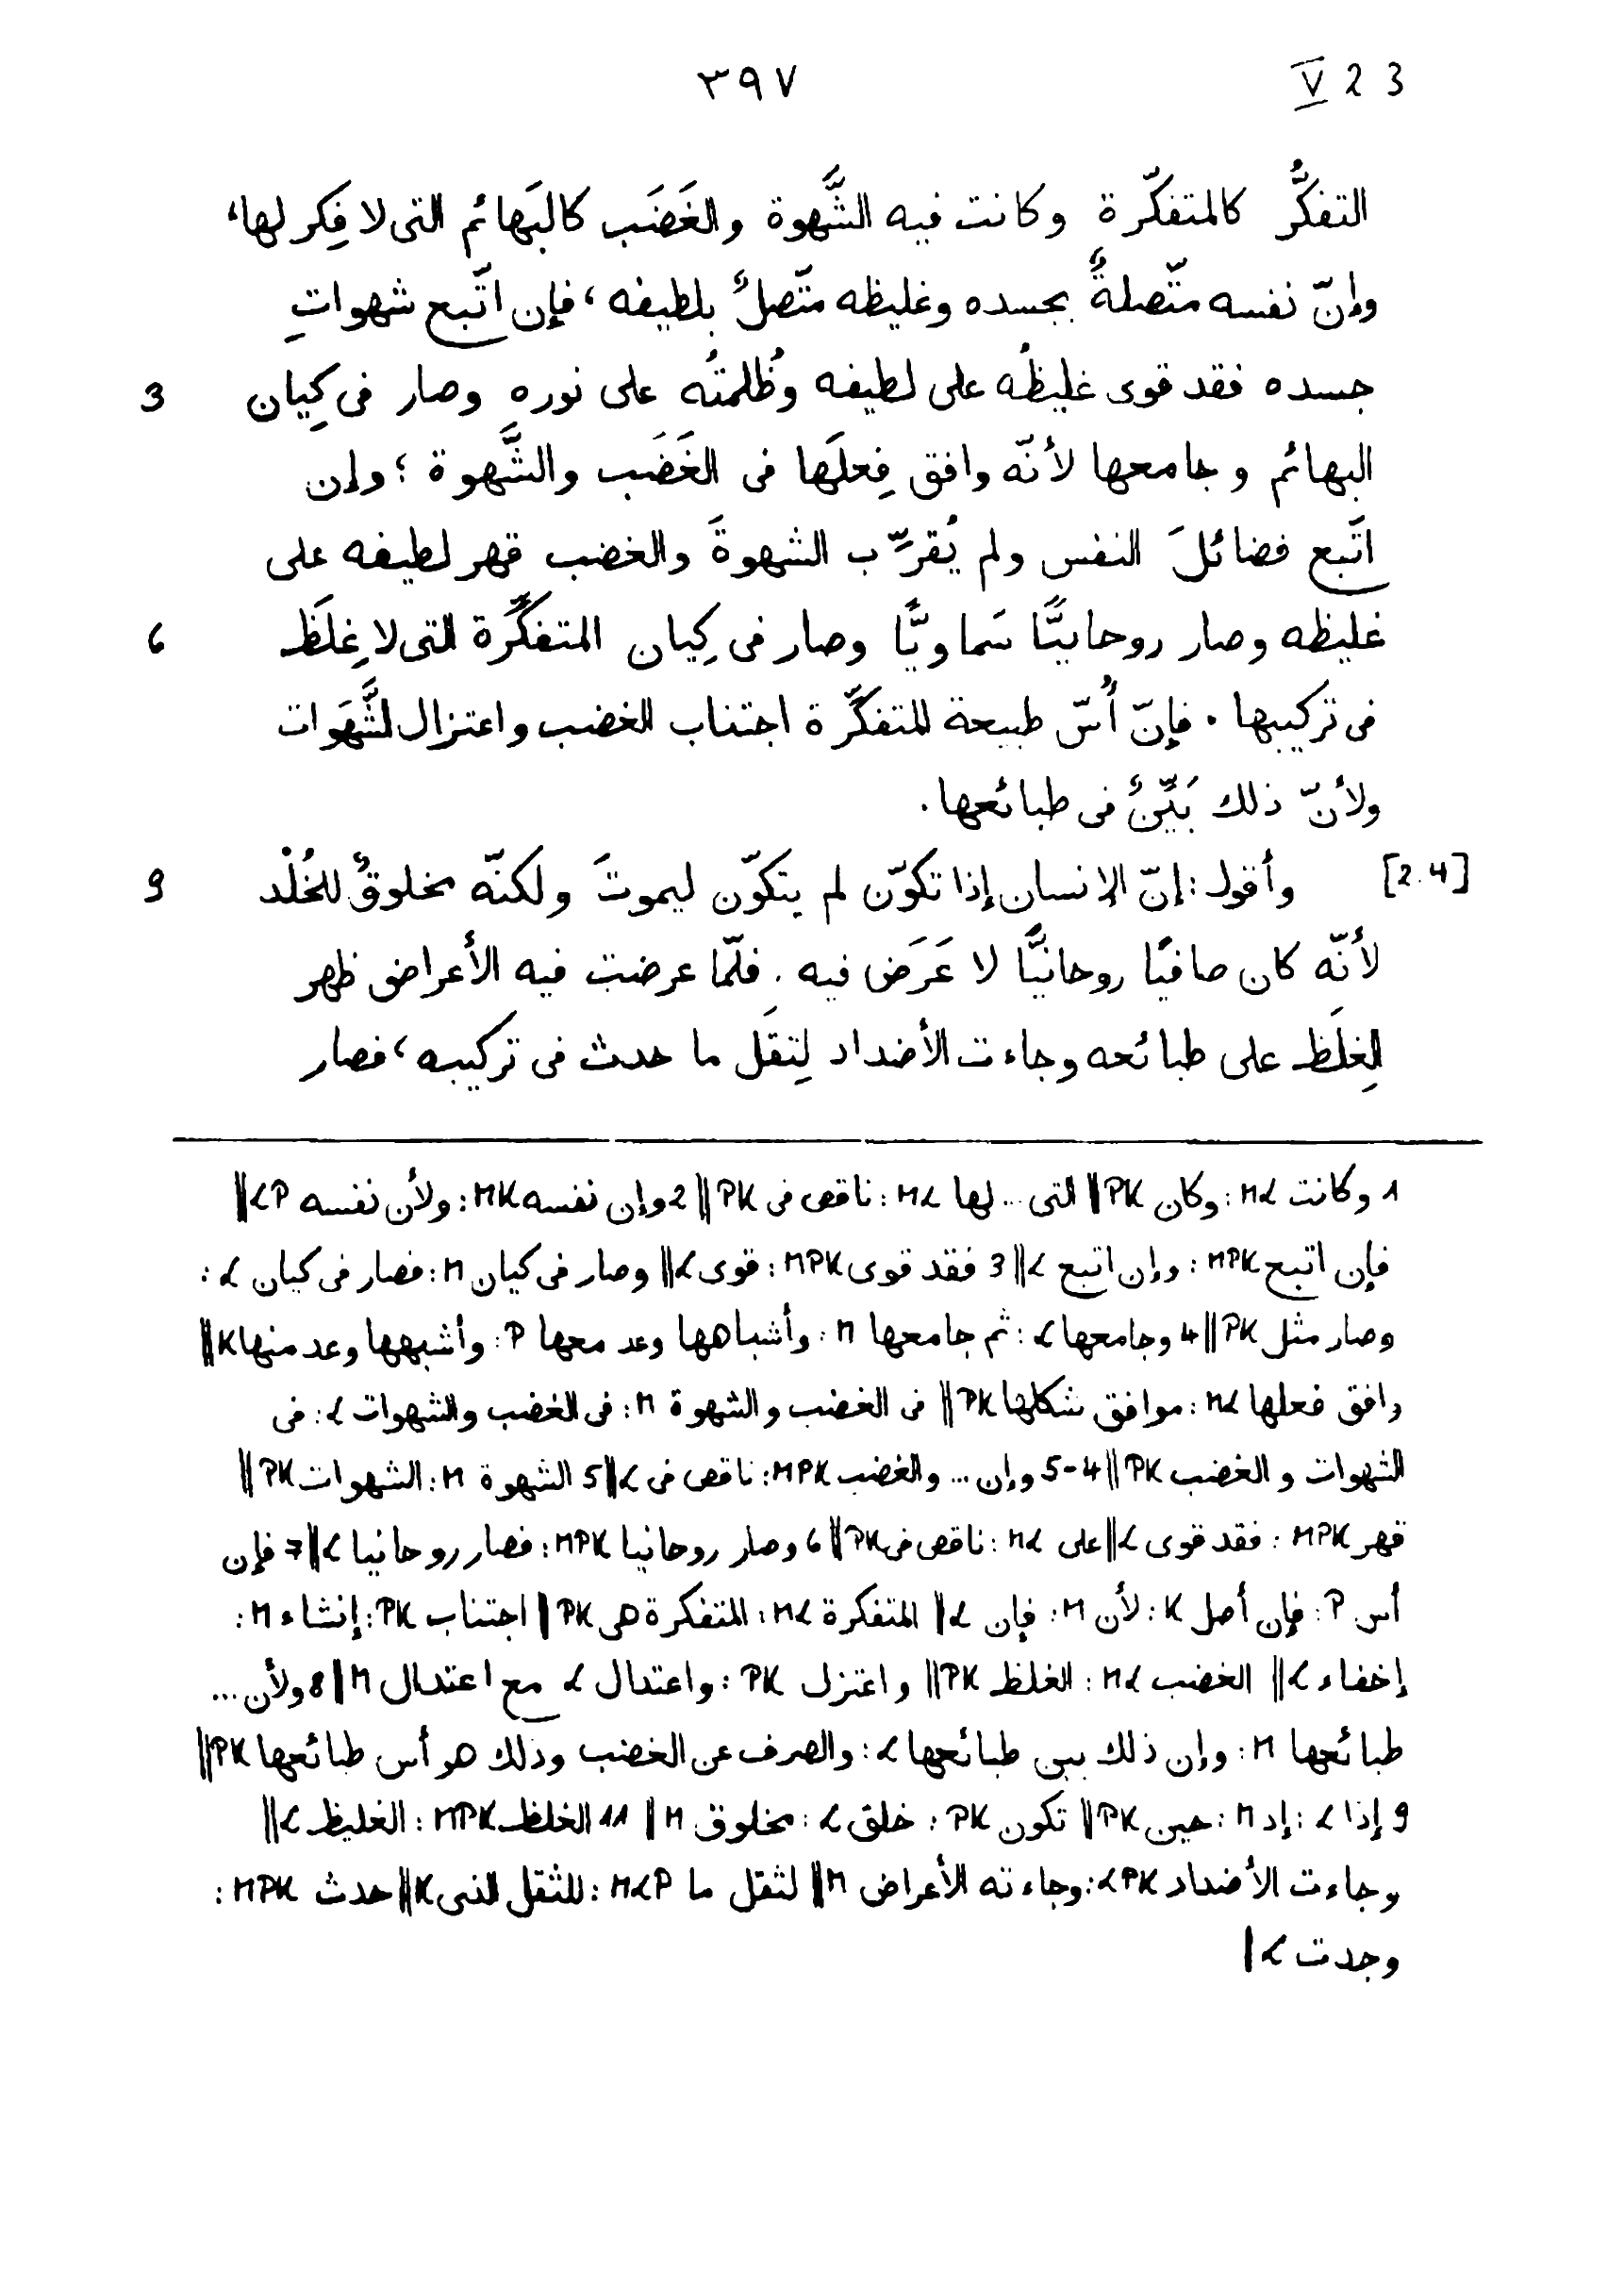 V 2 3 ٣٩٧
التفكُّر كالمتفكّرة وكانت فيه الشَّهوة والغَضَب كالبَهائم التى لا فِكر لها،
وإنّ نفسه متّصلةٌ بجسده وغليظه متّصلٌ بلطيفه، فإن اتّبع شهواتِ
جسده فقد قوى غليظُه على لطيفه وظُلمتُه على نوره وصار فى كِيان 3
البهائم وجامعها لأنّه وافق فِعلَها فى الغَضَب والشَّهوة؛ وإن
اتّبع فضائلَ النفس ولم يُقرِّب الشهوةَ والغضب قهر لطيفه على
غليظه وصار روحانيًّا سَماويًّا وصار فى كِيان المتفكِّرة التى لا غِلَظ 6
فى تركيبها. فإنّ أُسّ طبيعة المتفكِّرة اجتناب الغضب واعتزال الشَّهَوات
ولأنّ ذلك بَيِّنٌ فى طبائعها.
[2.4] وأقول: إنّ الإنسان إذا تكوّن لم يتكوّن ليموتَ ولكنّه مخلوقٌ للخُلْد 9
لأنّه كان صافيًا روحانيًّا لا عَرَض فيه. فلمّا عرضت فيه الأعراض ظهر
الغِلَظ على طبائعه وجاءت الأضداد لِتَقل ما حدث فى تركيبه، فصار
1 وكانت ML: وكان PK || التى... لها ML: ناقص فى PK || 2 وإن نفسه MK: ولأن نفسه LP ||
فإن اتبع MPK: وإن اتبع L || 3 فقد قوى MPK: قوى L || وصار فى كيان M: فصار فى كيان L:
وصار مثل PK || 4 وجامعها L: ثم جامعها M: وأشباهها وعد معها P: وأشبهها وعد منها K ||
وافق فعلها ML: موافق شكلها PK || فى الغضب والشهوة M: فى الغضب والشهوات L: فى
الشهوات والغضب PK || 4-5 وإن... والغضب MPK: ناقص فى L || 5 الشهوة M: الشهوات PK ||
قهر MPK: فقد قوى L || على ML: ناقص فى PK || 6 وصار روحانيا MPK: فصار روحانيا L || 7 فإن
أس P: فإن أصل K: لأن M: فإن L || المتفكرة ML: المتفكرة هى PK || اجتناب PK: إنشاء M:
إخفاء L || الغضب ML: الغلظ PK || واعتزل PK: واعتدال L مع اعتدال M || 8 ولأن...
طبائعها M: وإن ذلك ببى طبائعها L: والصرف عن الغضب وذلك هو أس طبائعها PK ||
9 إذا L: إد M: حين PK || تكون PK: خلق L: مخلوق M || 11 الغلظ MPK: الغليظ L ||
وجاءت الأضداد LPK: وجاءته الأعراض M || لثقل ما MLP: للثقل الذى K || حدث MPK:
وجدت L |